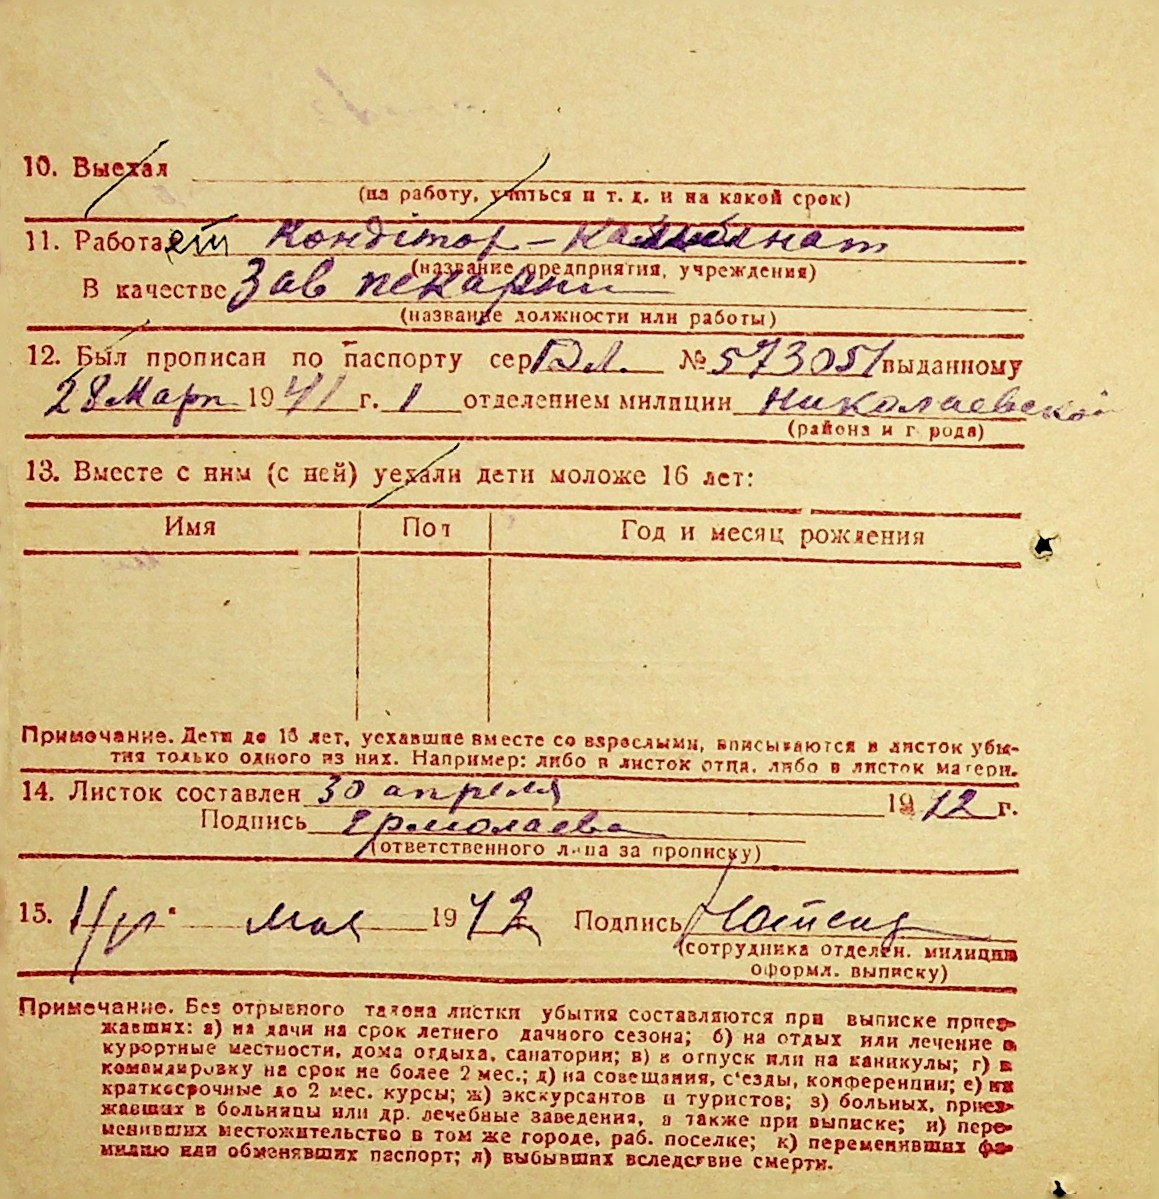 10. Выехал
(на работу, учиться и т. д. и на какой срок)
11. Работает Кондітор-Комбінат
(название предприятия, учреждения)
В качестве Зав пекарни
(название должности или работы)
12. Был прописан по паспорту сер. № 573051 выданному
28 Март 1941 г. 1 отделением милиции Николаевской
(района и г рода)
13. Вместе с ним (с ней) уехали дети моложе 16 лет:
Имя Пол Год и месяц рождения
Примечание. Дети до 16 лет, уехавшие вместе со взрослыми, вписываются в листок убы-
тия только одного из них. Например: либо в листок отца, либо в листок матери.
14. Листок составлен 30 апреля 1942 г.
Подпись Ермолаева
(ответственного лица за прописку)
15. мая 1942 Подпись
(сотрудника отделен. милиции
оформл. выписку)
Примечание. Без отрывного талона листки убытия составляются при выписке приез-
жавших: а) на дачи на срок летнего дачного сезона; б) на отдых или лечение в
курортные местности, дома отдыха, санатории; в) в отпуск или на каникулы; г) в
командировку на срок не более 2 мес.; д) на совещания, с'езды, конференции; е) на
краткосрочные до 2 мес. курсы; ж) экскурсантов и туристов; з) больных, приез-
жавших в больницы или др. лечебные заведения, а также при выписке; и) пере-
менивших местожительство в том же городе, раб. поселке; к) переменивших фа-
милию или обменявших паспорт; л) выбывших вследствие смерти.